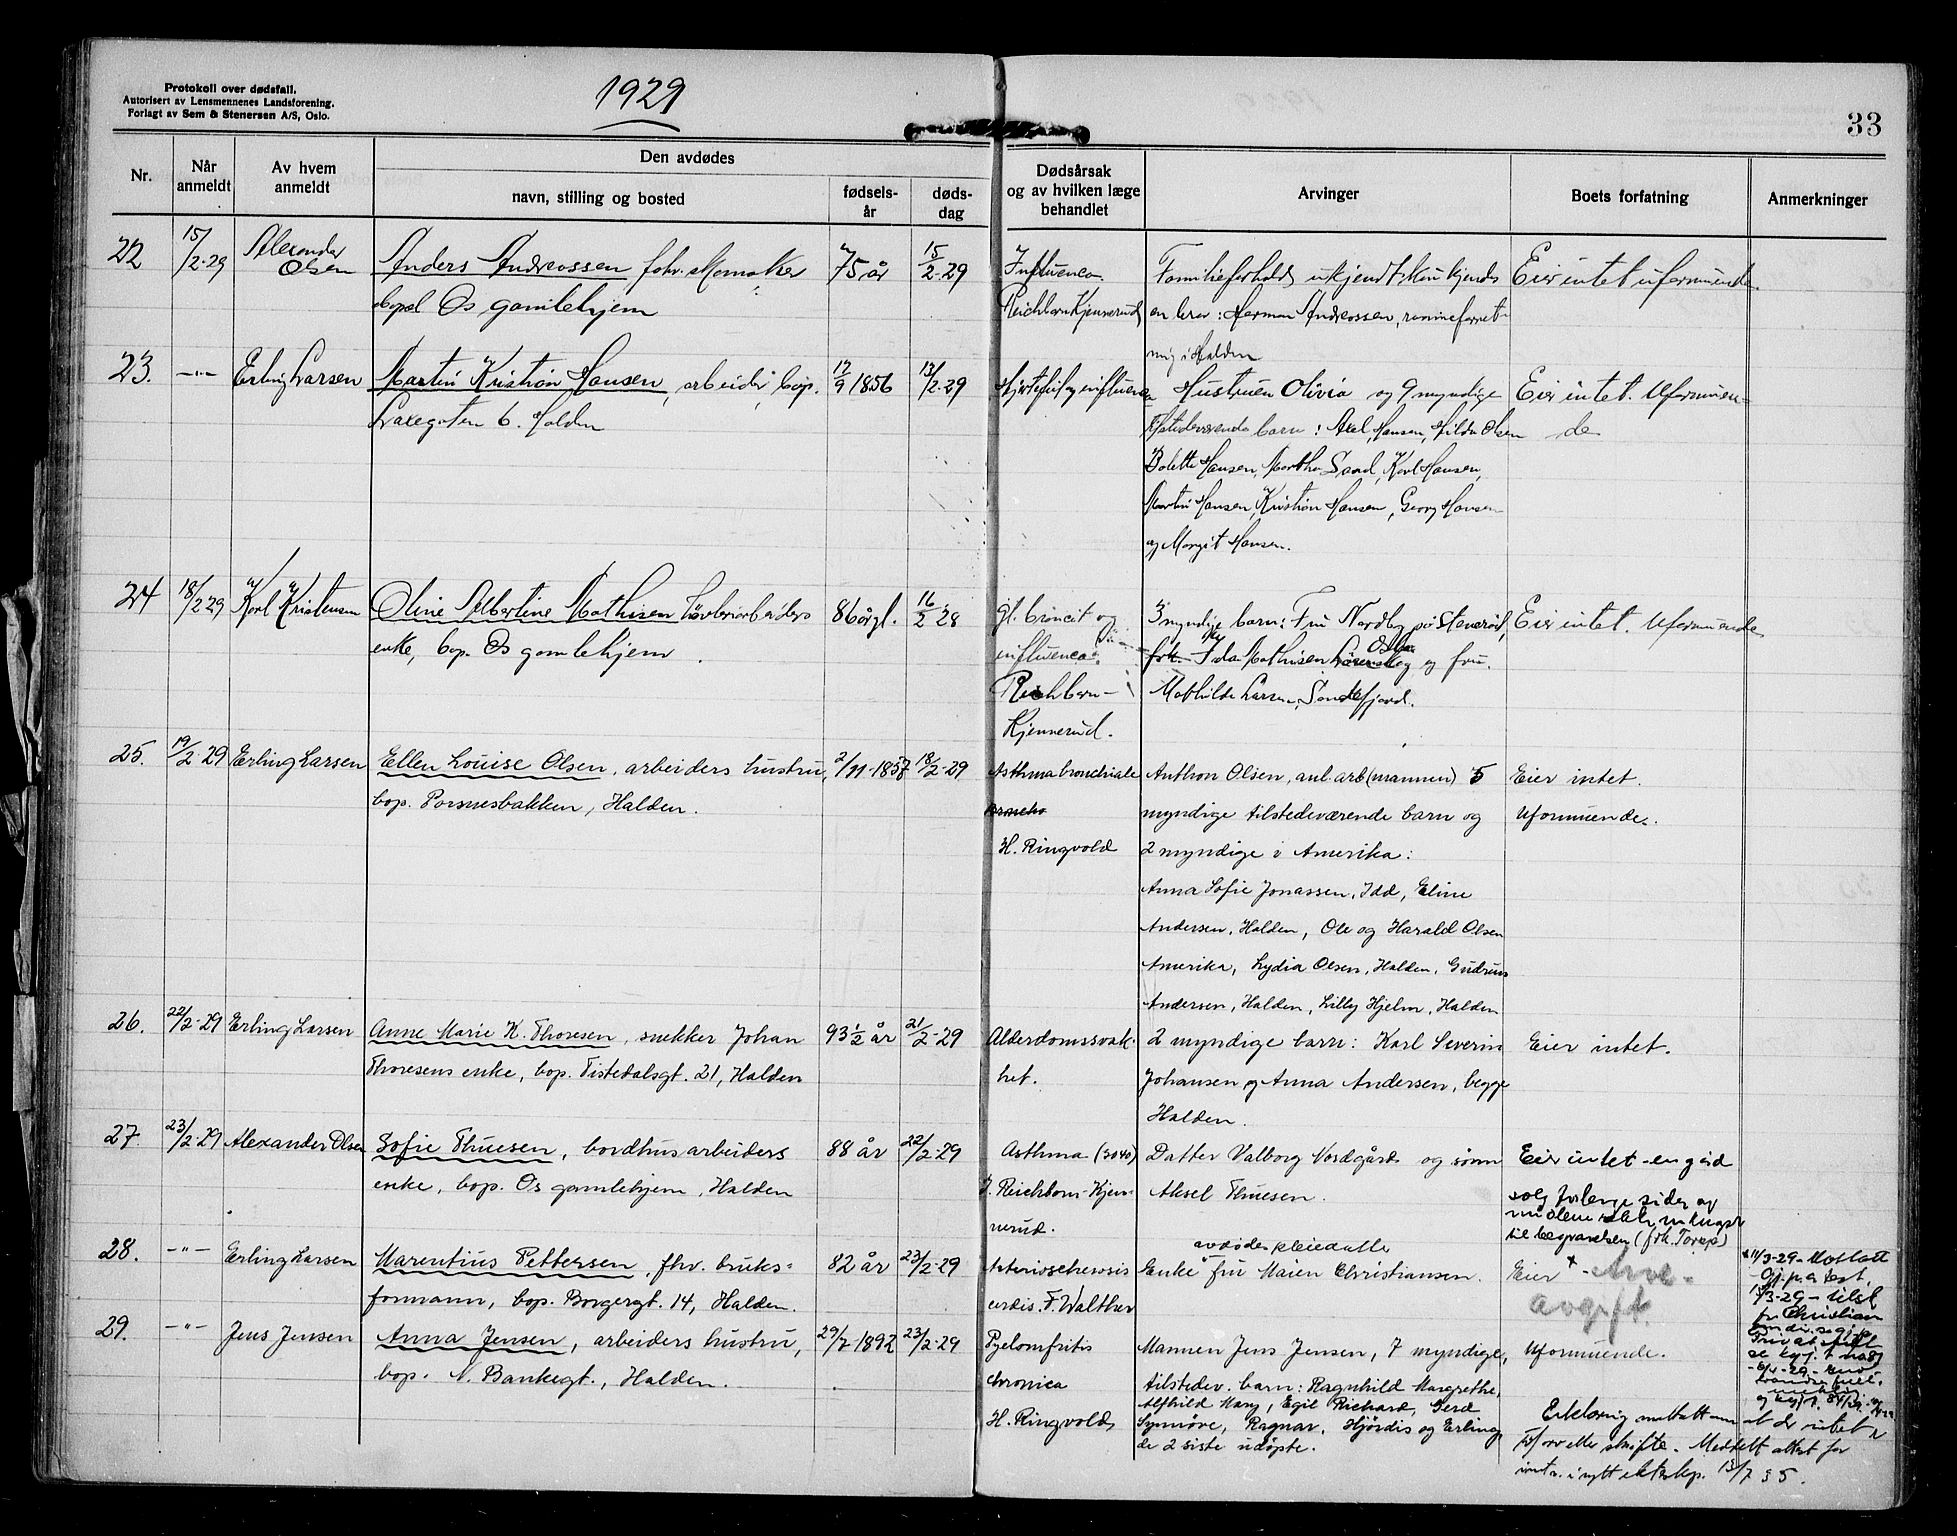 Protokoll over dødsfall.
Autorisert av Lensmennenes Landsforening.
Forlagt av Sem & Stenersen A/S, Oslo.
1929
33
Nr.
Når anmeldt
Av hvem anmeldt
Den avdødes
navn, stilling og bosted
fødsels-år
døds-dag
Dødsårsak og av hvilken læge behandlet
Arvinger
Boets forfatning
Anmerkninger
22 15/2-29 Alexander Olsen
Anders Andreassen, fohv.
bopel Os gamlehjem
75 år 15/2-29
Influenca
Reichborn Kjennerud
Familieforhold ukjendt kun kjendes
en bror: Herman Andreassen,
i Halden
Eier intet uformuende.
23. -"- Erling Larsen
Martin Kristian Hansen, arbeider, bop.
6. Halden
17/9 1856 13/2-29
Hustruen Olivia og 9 myndige
tilstedeværende barn: Axel Hansen, Hilda Olsen
Bolette Hansen, Martha Sand, Karl Hansen,
Martin Hansen, Kristian Hansen, Georg Hansen
og Margit Hansen.
Eier intet. Uformuen-
de
24 18/2 29 Karl Kristensen
Oline Albertine Mathisen
enke, bop. Os gamlehjem.
86 år gl. 16/2-28
gl. broncit og
influenca.
Reichborn-
Kjennerud.
3 myndige barn: Fru Nordby på
frk. Ida Mathisen Oslo og fru.
Mathilde Larsen, Sandefjord.
Eier intet. Uformuende
25. 19/2-29 Erling Larsen
Ellen Louise Olsen, arbeiders hustru,
bop. Porsnesbakken, Halden.
2/11-1857 18/2-29
Asthma bronchiale
H. Ringvold
Anthon Olsen, anl. arb (mannen) 5
myndige tilstedeværende barn og
2 myndige i Amerika:
Anna Sofie Jonassen, Idd, Eline
Andersen, Halden, Ole og Harald Olsen
Amerika, Lydia Olsen, Halden, Gudrun
Andersen, Halden, Lilly Hjelm, Halden
Eier intet.
Uformuende.
26. 22/2-29 Erling Larsen
Anne Marie K. Thoresen, snekker Johan
Thoresens enke, bop. Tistedalsgt. 21, Halden
93 ½ år 21/2-29
Alderdomssvak-
het.
2 myndige barn: Karl Severin
Johansen og Anna Andersen, begge
Halden.
Eier intet.
27. 23/2-29 Alexander Olsen
Sofie Thuesen, bordhusarbeiders
enke, bop. Os gamlehjem, Halden
88 år 22/2-29
Asthma (3040)
J. Reichborn-Kjen-
nerud.
Datter Valborg Nordgård og sønn
Aksel Thuesen.
Eier intet - en gård
solg for lenge siden og
til begravelsen (frk. Torp)
28. -"- Erling Larsen
Marentius Pettersen, fhv. bruks-
formann, bop. Borgergt. 14, Halden.
82 år 23/2-29
F. Walther
avdødes pleiedatter
Enke "fru Maien Christiansen.
Eier + Arve-
avgift.
+ 11/3-29- Mottatt
29. -"- Jens Jensen
Anna Jensen, arbeiders hustru,
bop. N. Bankegt., Halden.
29/7-1892 23/2-29
Pyelonefritis
chronica
H. Ringvold
Mannen Jens Jensen, 7 myndige,
tilstedev. barn: Ragnhild Margrethe,
Alfhild Mary, Egil Richard, Gerd
Synnøve, Ragnar, Hjørdis og Erling,
de 2 siste udøpte.
Uformuende.
Erklæring mottatt om at der intet er
skifte. Meddelt attest for
i nytt ekteskap. 13/7 35.